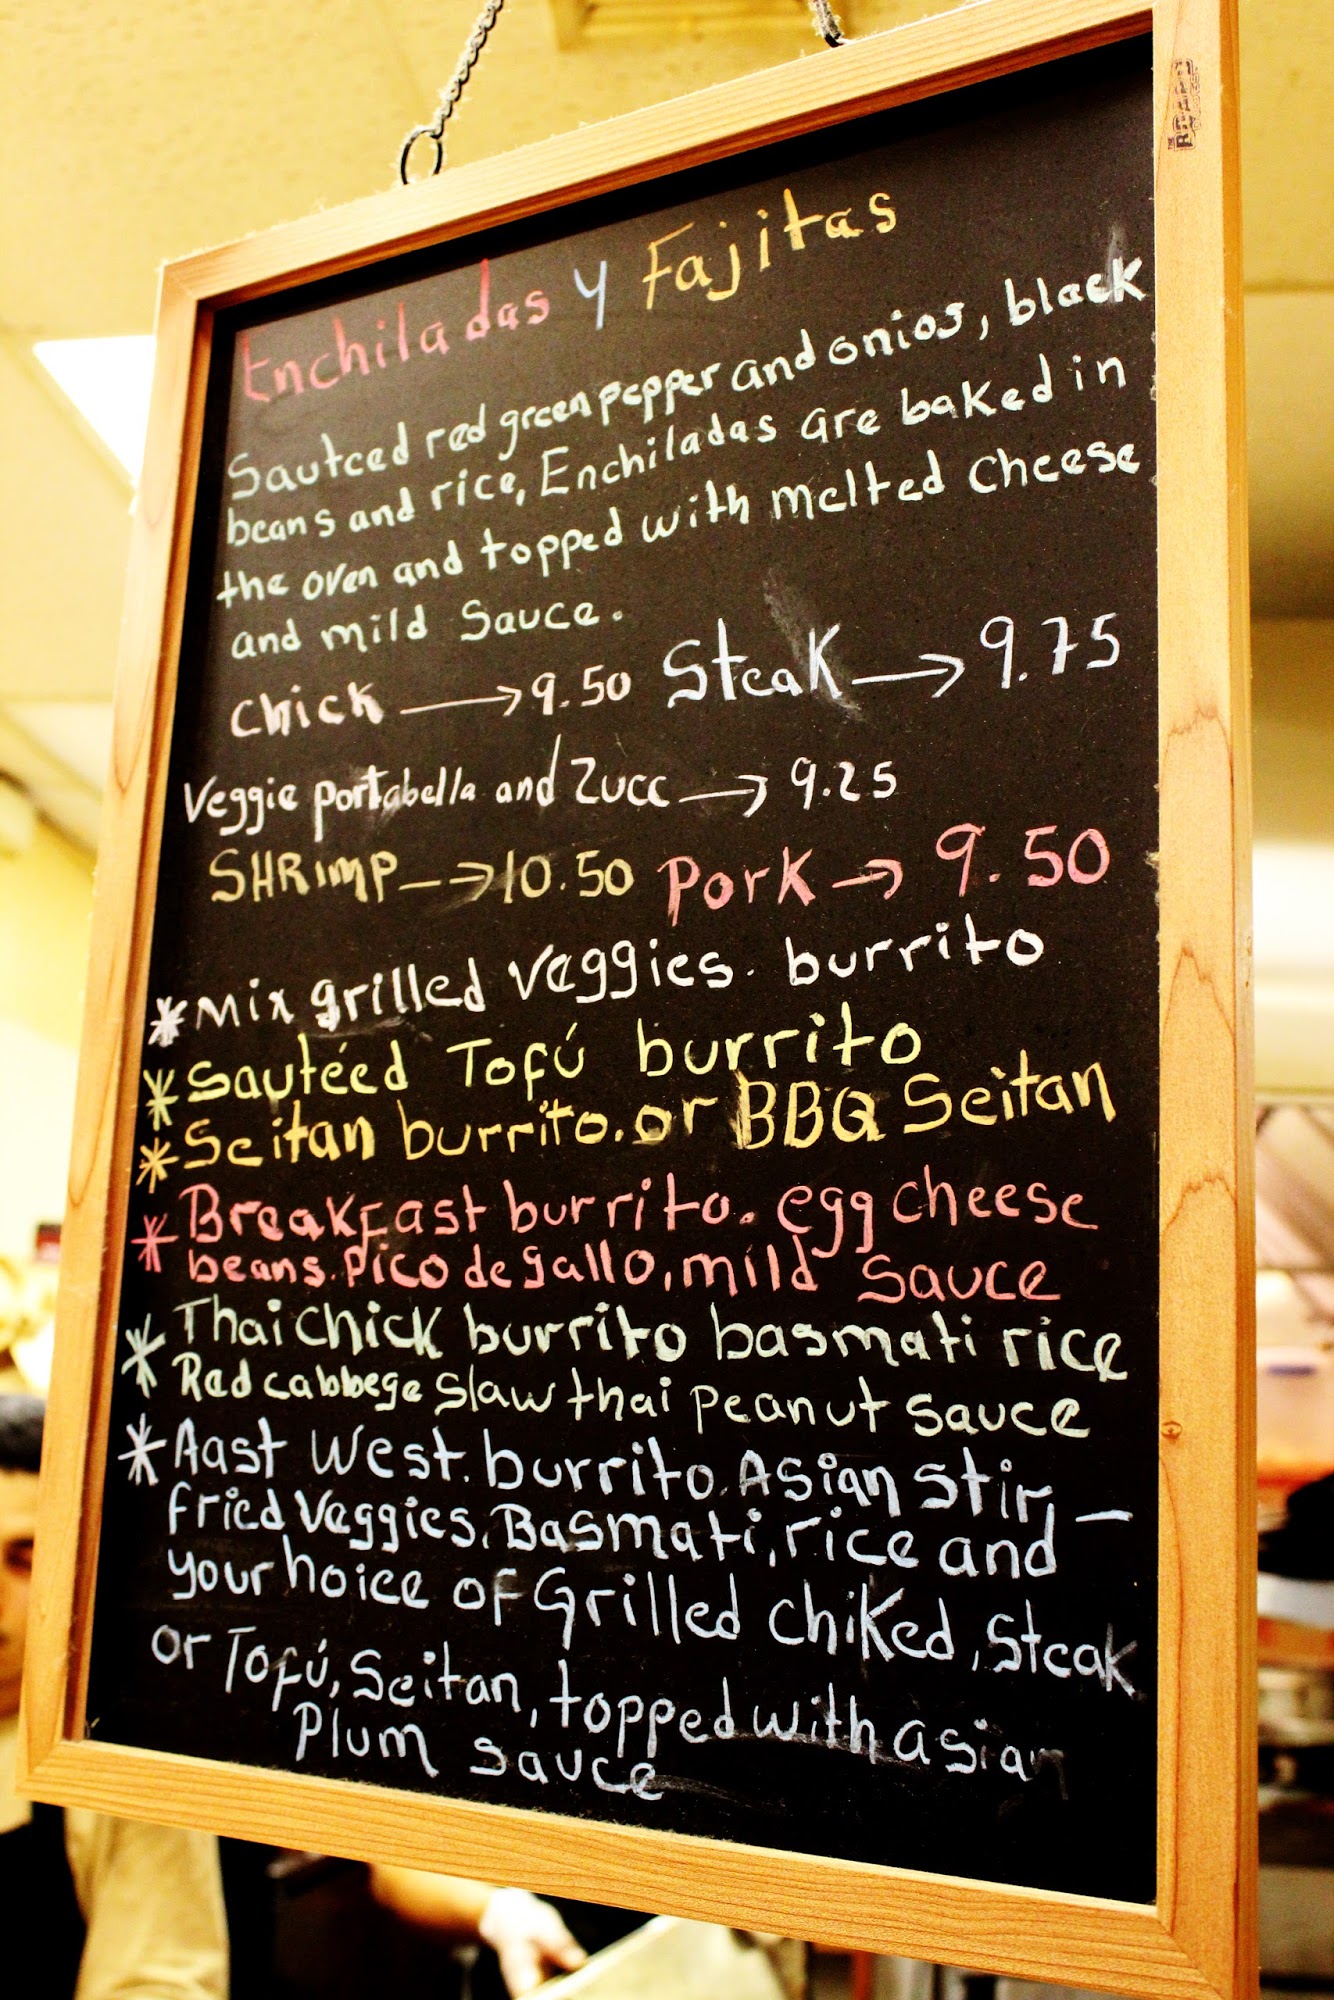 Enchiladas y Fajitas
Sauteed red green pepper and onios, black
beans and rice, Enchiladas are baked in
the oven and topped with melted cheese
and mild sauce.
chick → 9.50 Steak → 9.75
Veggie portabella and Zucc → 9.25
SHRimp → 10.50 Pork → 9.50
* Mix grilled veggies. burrito
* Sautéed Tofú burrito
* Seitan burrito. or BBQ Seitan
* Breakfast burrito. egg cheese
beans. pico de gallo, mild sauce
* Thai chick burrito basmati rice
Red cabbege slaw thai peanut sauce
* Aast West. burrito. Asian stir, —
fried veggies, Basmati, rice and
your hoice of Grilled chiked, steak
or Tofú, Seitan, topped with asian
Plum sauce